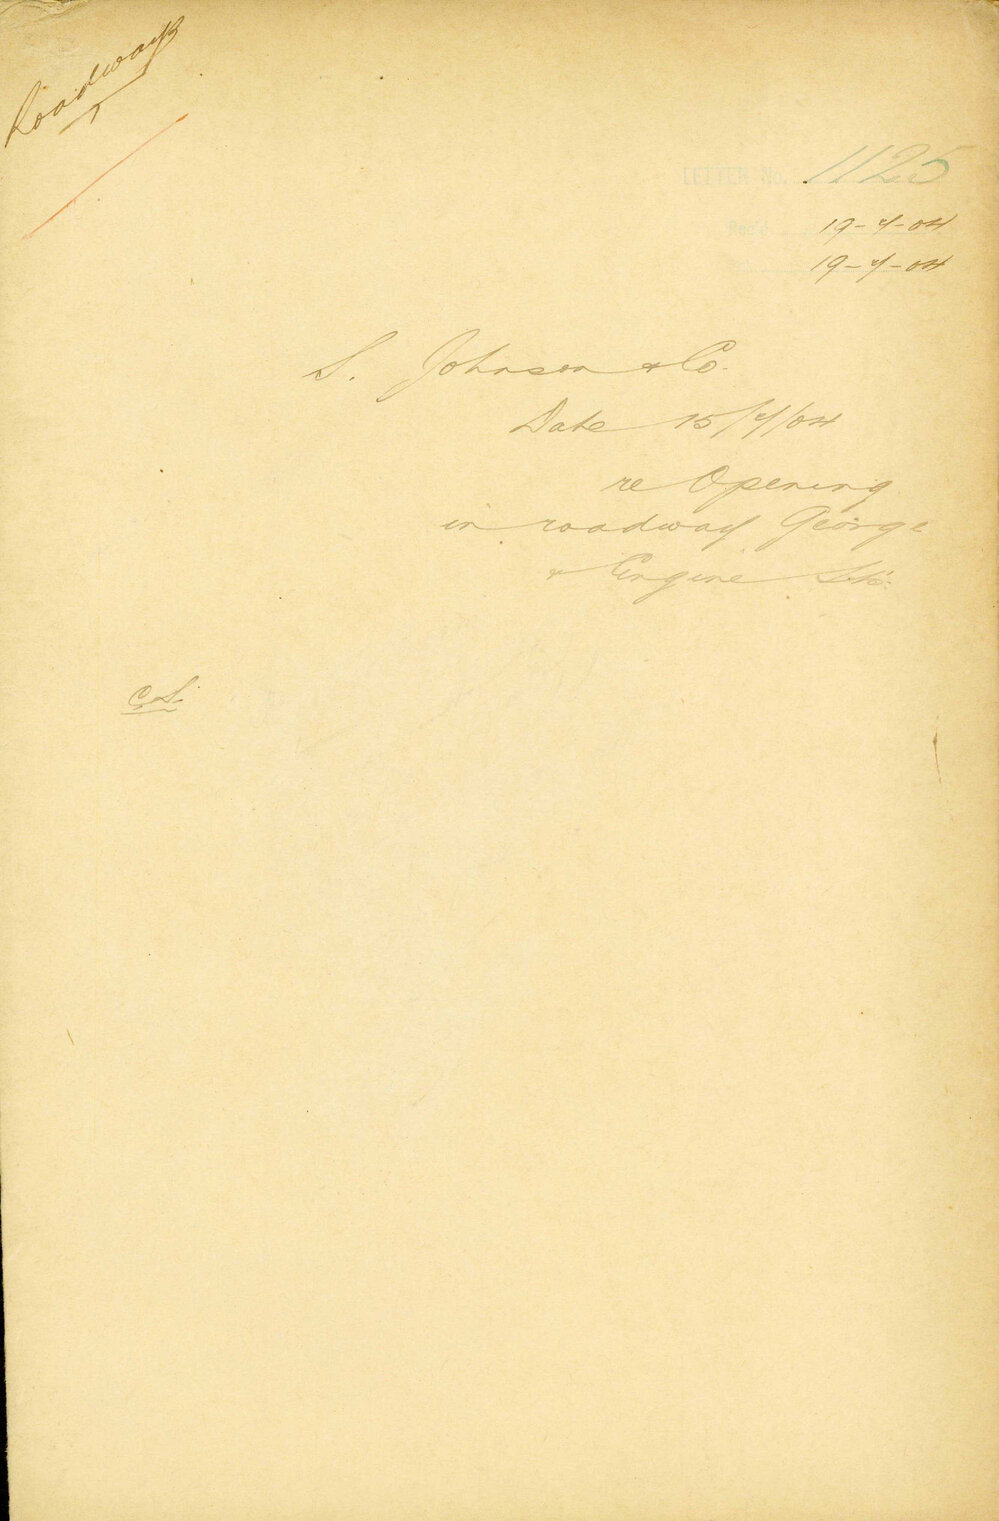 Roadways
LETTER No. 1125
Rec'd 19-7-04
19-7-04
S. Johnson & Co.
Date 15/7/04
re Opening
in roadway George
& Engine Sts:
C.S.